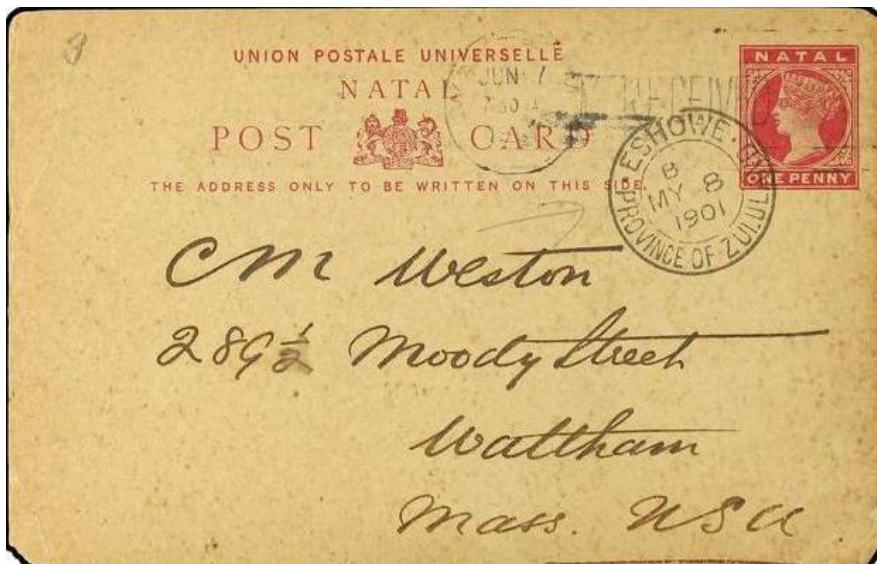 3
UNION POSTALE UNIVERSELLE
NATAL
POST CARD
THE ADDRESS ONLY TO BE WRITTEN ON THIS SIDE.
NATAL
ONE PENNY
JUN 7
RECEIVED
ESHOWE
B
MY 8
1901
PROVINCE OF ZULUL
C M Weston
289 1/2 Moody Street
Waltham
Mass. USA